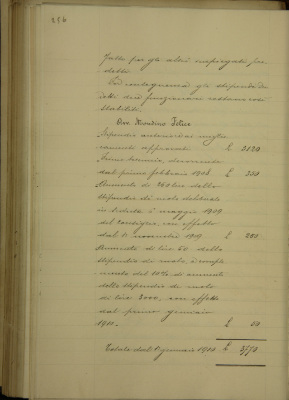 216
fatto per gli altri impiegati pre
detti
Di conseguenza gli stipendi dei
detti due funzionari restano così
stabiliti.
Felice
Stipendio anteriore ai miglio
ramenti approvati £ 3120
Primo
dal primo febbraio 1908 £
Aumento di 260 lire dello
stipendio di ruolo deliberato
in seduta 6 maggio 1909
dal Consiglio, con effetto
dal 1º novembre 1909 £
Aumento di lire 50 dello
stipendio di ruolo, a
mento del 10% di aumento
dello stipendio di ruolo
di lire 2000, con effetto
dal primo gennaio
1911. £ 50
Totale dal 1º gennaio 1911 £ 3770